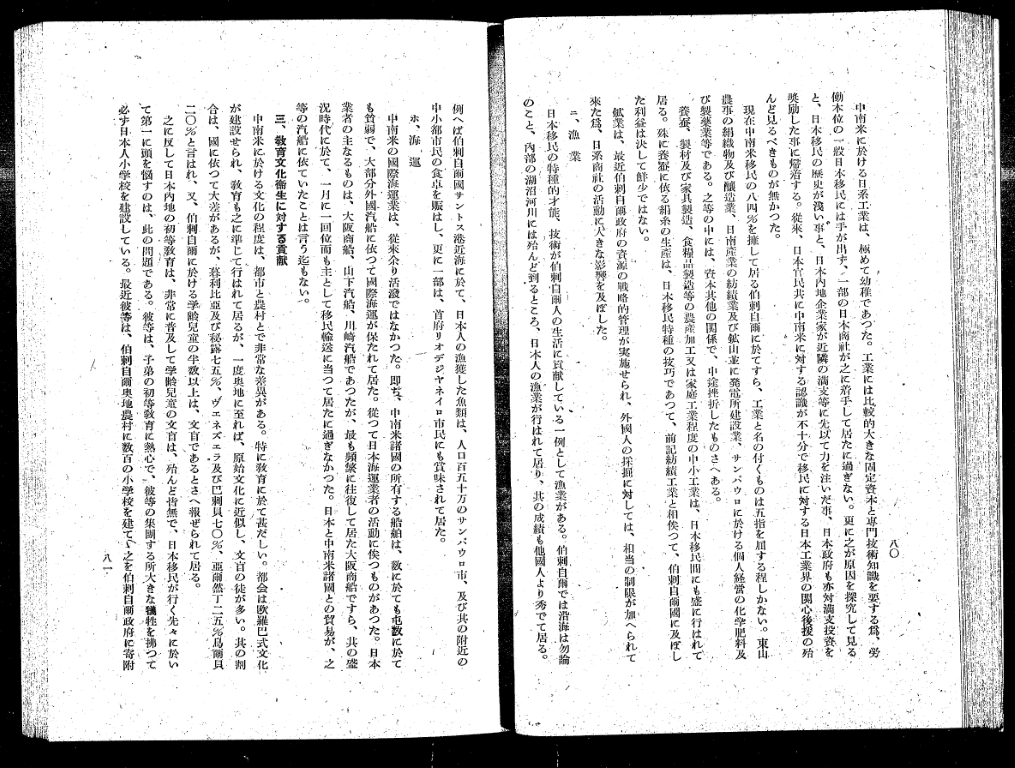 八〇
中南米に於ける日系工業は、極めて幼稚であつた。工業には比較的大きな固定資本と専門技術知識を要する爲、勞
働本位の一般日本移民には手が出ず、一部の日本商社が之に着手して居たに過ぎない。更に之が原因を探究して見る
と、日本移民の歴史が淺い事と、日本内地企業家が近隣の滿支等に先以て力を注いだ事、日本政府も亦対滿支投資を
奬励した事に歸着する。從來、日本官民共に中南米に対する認識が不十分で移民に対する日本工業界の関心後援の殆
んど見るべきものが無かつた。
現在中南米移民の八四％を擁して居る伯剌自爾に於てすら、工業と名の付くものは五指を屈する程しかない。東山
農事の絹織物及び釀造業、日南産業の紡績業及び鉱山並に発電所建設業、サンパウロに於ける個人経営の化学肥料及
び製藥業等である。之等の中には、資本其他の関係で、中途挫折したものさへある。
養蚕、製材及び家具製造、食糧品製造等の農産加工又は家庭工業程度の中小工業は、日本移民間にも盛に行はれて
居る。殊に養蚕に依る絹糸の生産は、日本移民特種の技巧であつて、前記紡績工業と相俟つて、伯剌自爾國に及ぼし
た利益は決して鮮少ではない。
鉱業は、最近伯剌自爾政府の資源の戰略的管理が実施せられ、外國人の採掘に対しては、相当の制限が加へられて
來た爲、日系商社の活動に大きな影響を及ぼした。
ニ、漁業
日本移民の特種的才能、技術が伯剌自爾人の生活に貢献している一例として漁業がある。伯剌自爾では沿海は勿論
のこと、内部の湖沼河川には殆んど到るところ、日本人の漁業が行はれて居り、其の成績も他國人より秀でて居る。
例へば伯剌自爾國サントス港近海に於て、日本人の漁獲した魚類は、人口百五十万のサンパウロ市、及び其の附近の
中小都市民の食卓を賑はし、更に一部は、首府リオデジヤネイロ市民にも賞味されて居た。
ホ、海運
中南米の國際海運業は、從來余り活溌ではなかつた。即ち、中南米諸國の所有する船舶は、数に於ても屯数に於て
も貧弱で、大部分外國汽船に依つて國際海運が保たれて居た。從つて日本海運業者の活動に俟つものがあつた。日本
業者の主なるものは、大阪商船、山下汽船、川崎汽船であつたが、最も頻繁に往復して居た大阪商船ですら、其の盛
況時代に於て、一月に一回位而も主として移民輸送に当つて居たに過ぎなかつた。日本と中南米諸國との貿易が、之
等の汽船に依ていたことは言う迄もない。
三、教育文化衞生に対する貢献
中南米に於ける文化の程度は、都市と農村とで非常な差異がある。特に敎育に於て甚だしい。都会は欧羅巴式文化
が建設せられ、敎育も之に準じて行はれて居るが、一度奥地に至れば、原始文化に近似し、文盲の徒が多い。其の割
合は、國に依つて大差があるが、暮利比亞及び秘露七五％、ヴェネズエラ及び巴剌貝七〇％、亜爾然丁二五％烏爾貝
二〇％と言はれ、又、伯剌自爾に於ける学齡兒童の半数以上は、文盲であるとさへ報ぜられて居る。
之に反して日本内地の初等敎育は、非常に普及して学齡兒童の文盲は、殆んど皆無で、日本移民が行く先々に於い
て第一に頭を惱すのは、此の問題である。彼等は、子弟の初等敎育に熱心で、彼等の集團する所大きな犠牲を拂つて
必ず日本人小学校を建設している。最近彼等は、伯剌自爾奥地農村に数百の小学校を建て、之を伯剌自爾政府に寄附
八一